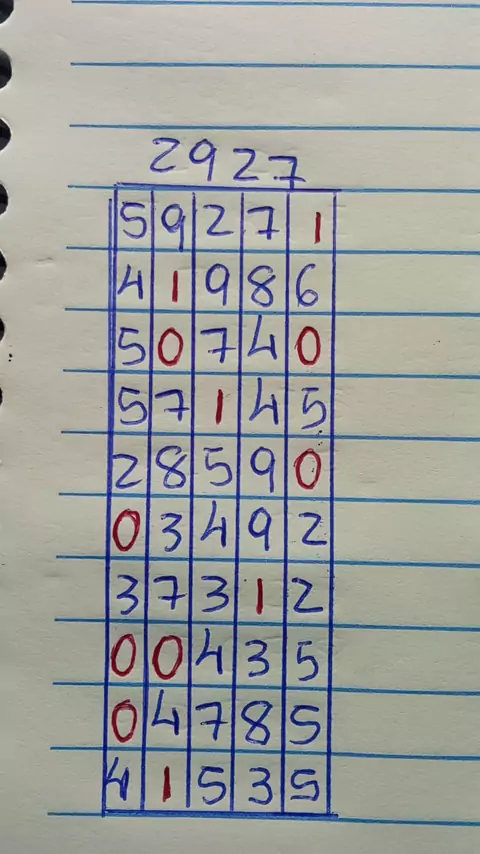 2927
5 9 2 7 1
4 1 9 8 6
5 0 7 4 0
5 7 1 4 5
2 8 5 9 0
0 3 4 9 2
3 7 3 1 2
0 0 4 3 5
0 4 7 8 5
4 1 5 3 5